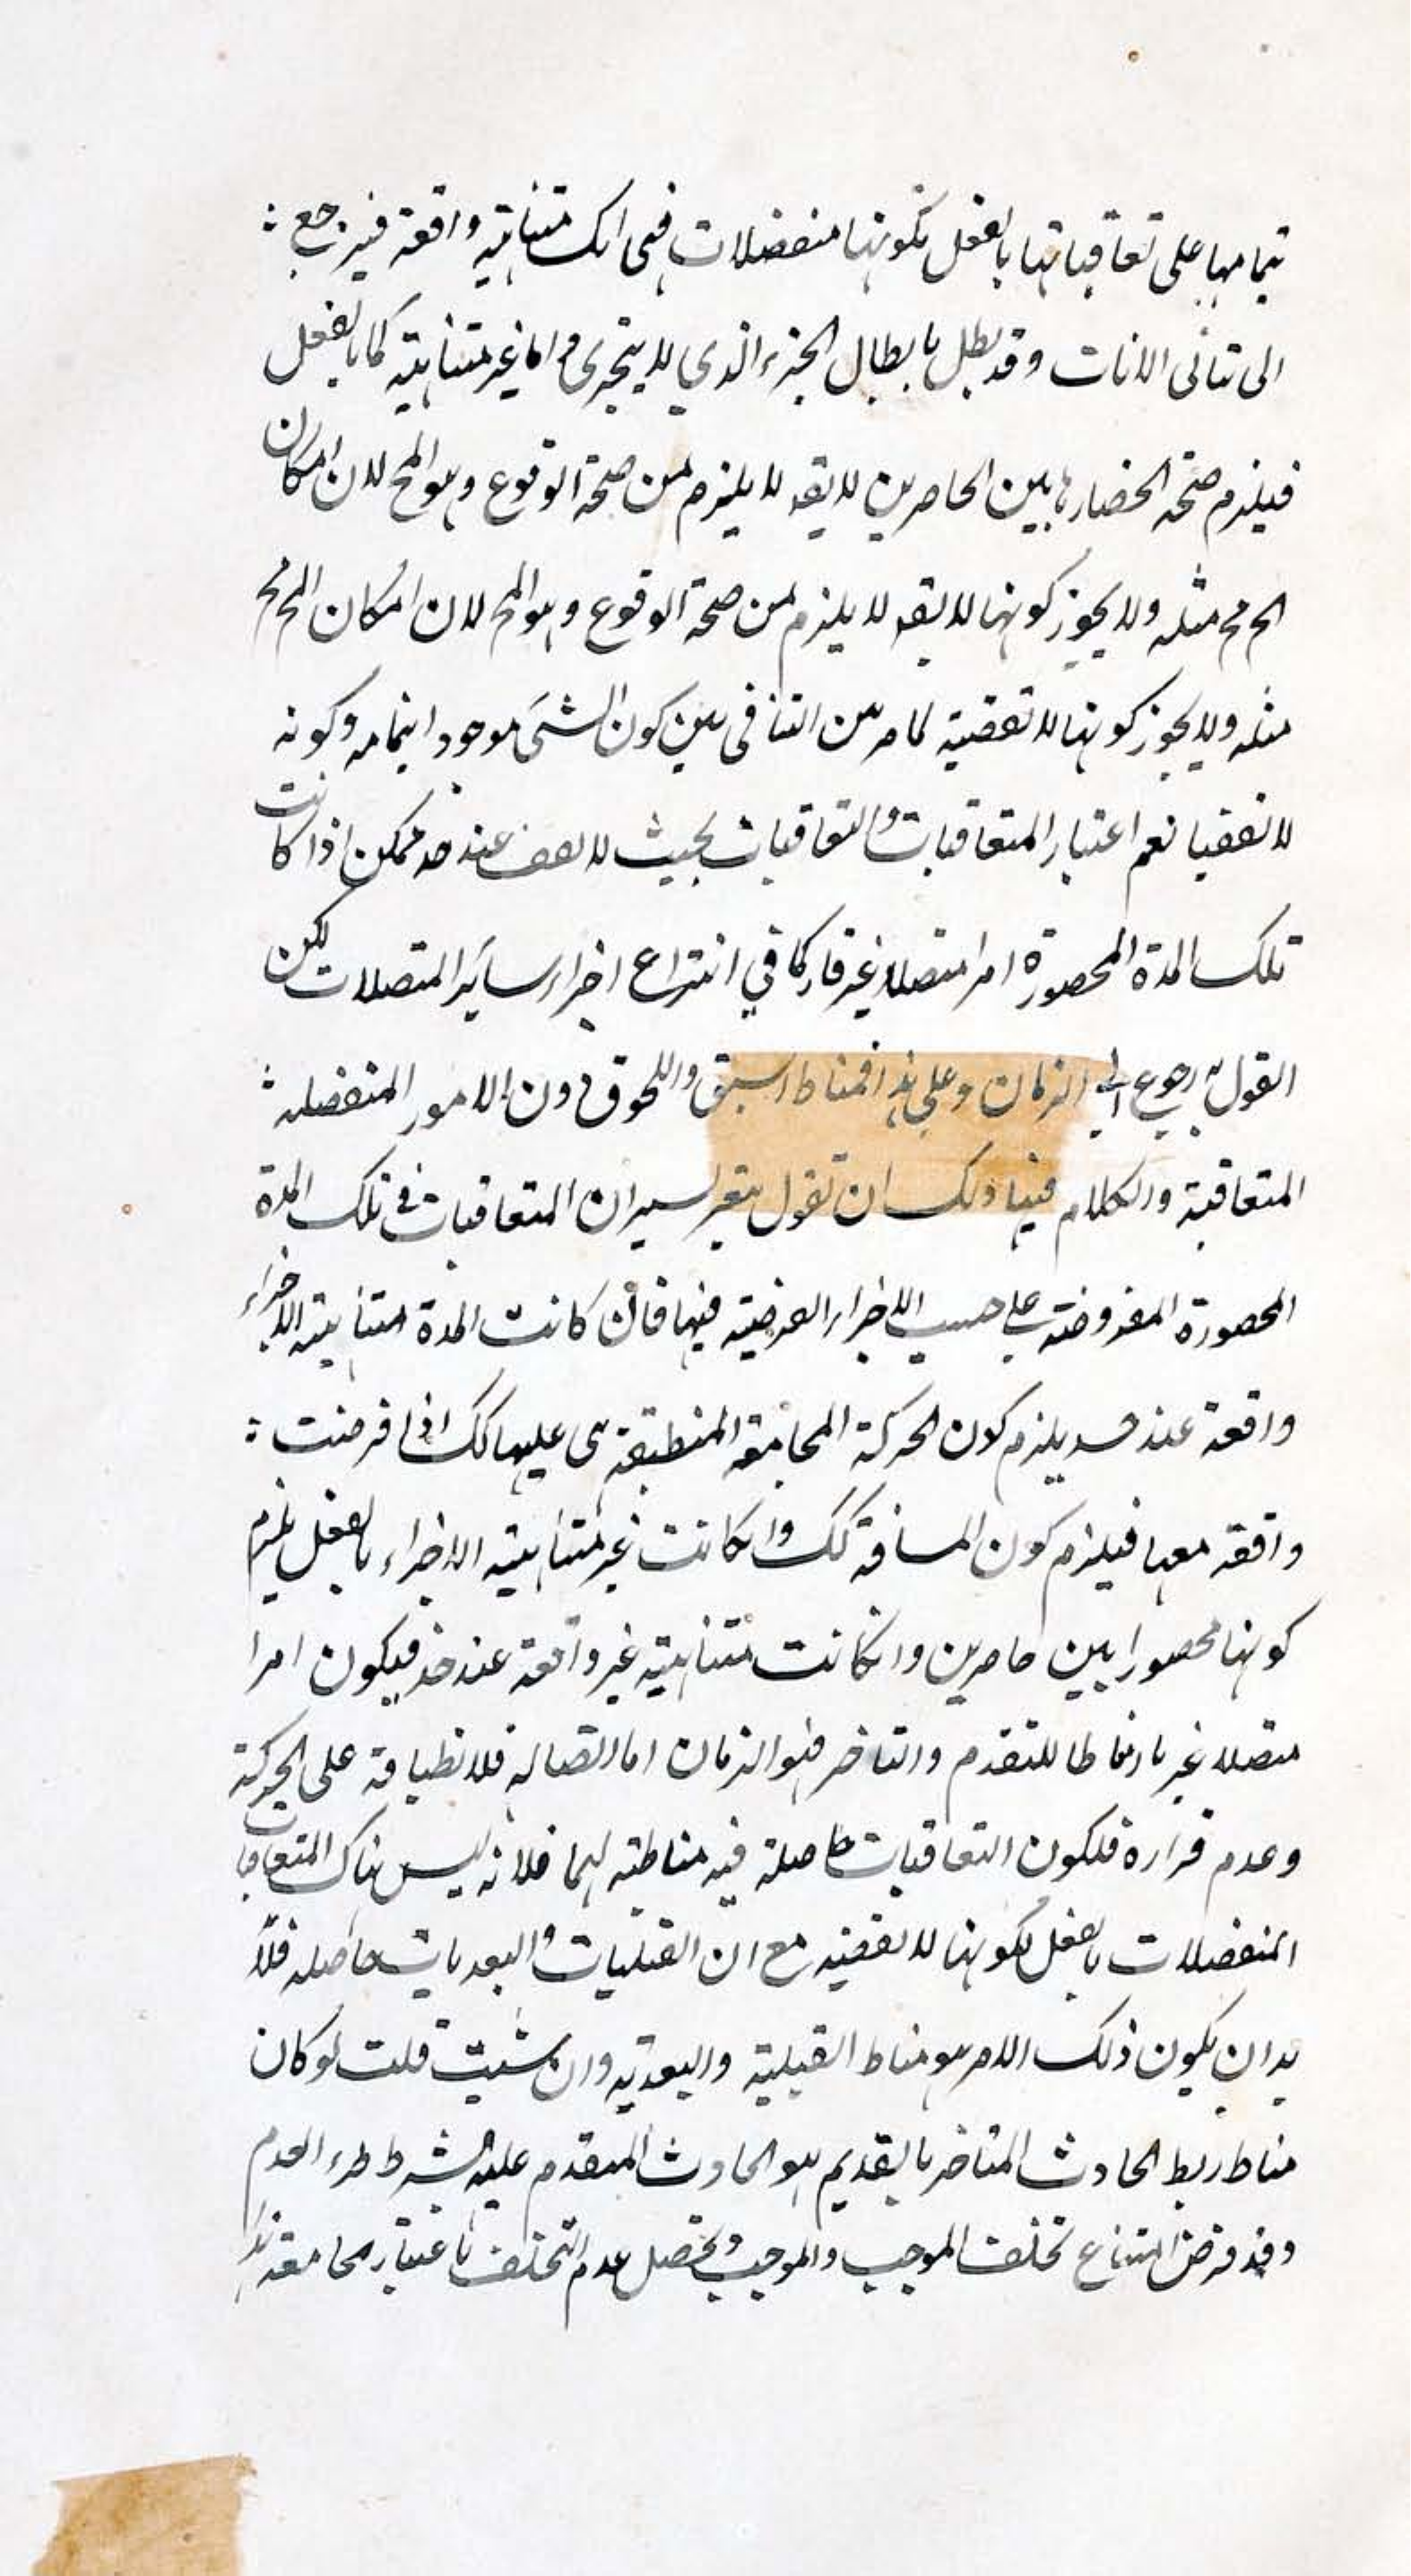 بتمامها على تعاقباتها بالفعل لكونها منفصلات فهى اما متناهية واقعة فيرجع
الى تتالى الانات وقد بطل بابطال الجزء الذي لا يتجزى واما غير متناهية كما بالفعل
فيلزم صحة انحصارها بين الحاصرين لا يقه لا يلزم من صحة الوقوع وهو المح لان امكان
المح مح مثله ولا يجوز كونها لا يقه لا يلزم من صحة الوقوع وهو المح لان امكان المح مح
مثله ولا يجوز كونها لا تقفية لما مر من التنافى بين كون الشئ موجودا بتمامه وكونه
لا تقفيا نعم اعتبار المتعاقبات والتعاقبات بحيث لا تقف عند حد ممكن اذا كانت
تلك المدة المحصورة امرا متصلا غير قار كما في انتزاع اجزاء سائر المتصلات لكن
القول به رجوع الى الزمان وعلى هذا فمناط السبق واللحوق دون الامور المنفصلة
المتعاقبة والكلام فيها ولك ان تقول بتغير يسير ان المتعاقبات في تلك المدة
المحصورة المفروضة على حسب الاجزاء الفرضية فيها فان كانت المدة متناهية الاجزاء
واقعة عند حد يلزم كون الحركة المجامعة المنطبقة هى عليها كك اذا فرضت
واقعة معها فيلزم كون المسافة كك وان كانت غير متناهية الاجزاء بالفعل يلزم
كونها محصورا بين حاصرين وان كانت متناهية غير واقعة عند حد فيكون امرا
متصلا غير قار مناطا للتقدم والتاخر فهو الزمان اما اتصاله فلانطباقه على الحركة
وعدم قراره فلكون التعاقبات حاصلة فيه مناطته لهما فلانه ليس هناك المتعاقبات
المنفصلات بالفعل لكونها لا تقفية مع ان القبليات والبعديات حاصلة فلا
بد ان يكون ذلك الامر هو مناط القبلية والبعدية وان شئت قلت لو كان
مناط ربط الحادث المتاخر بالقديم هو الحادث المتقدم عليه بشرط طرء العدم
وقد فرض امتناع تخلف الموجب والموجب ويحصل عدم التخلف باعتبار مجامعة هذا